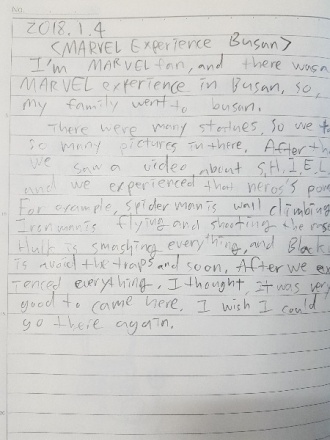 No.
2018.1.4
<MARVEL Experience Busan>
I'm MARVEL fan, and there was a
MARVEL experience in Busan, so,
my family went to busan.
There were many statues, so we
so many pictures in there. After
we saw a video about S,H,I,E,L,
and we experienced that heros's
For example, Spider man is wall climbing
Iron man is flying and shooting the
Hulk is smashing everything, and Black
is avoid the traps and soon. After we
ienced everything, I thought, it was very
good to came here. I wish I could
go there again.